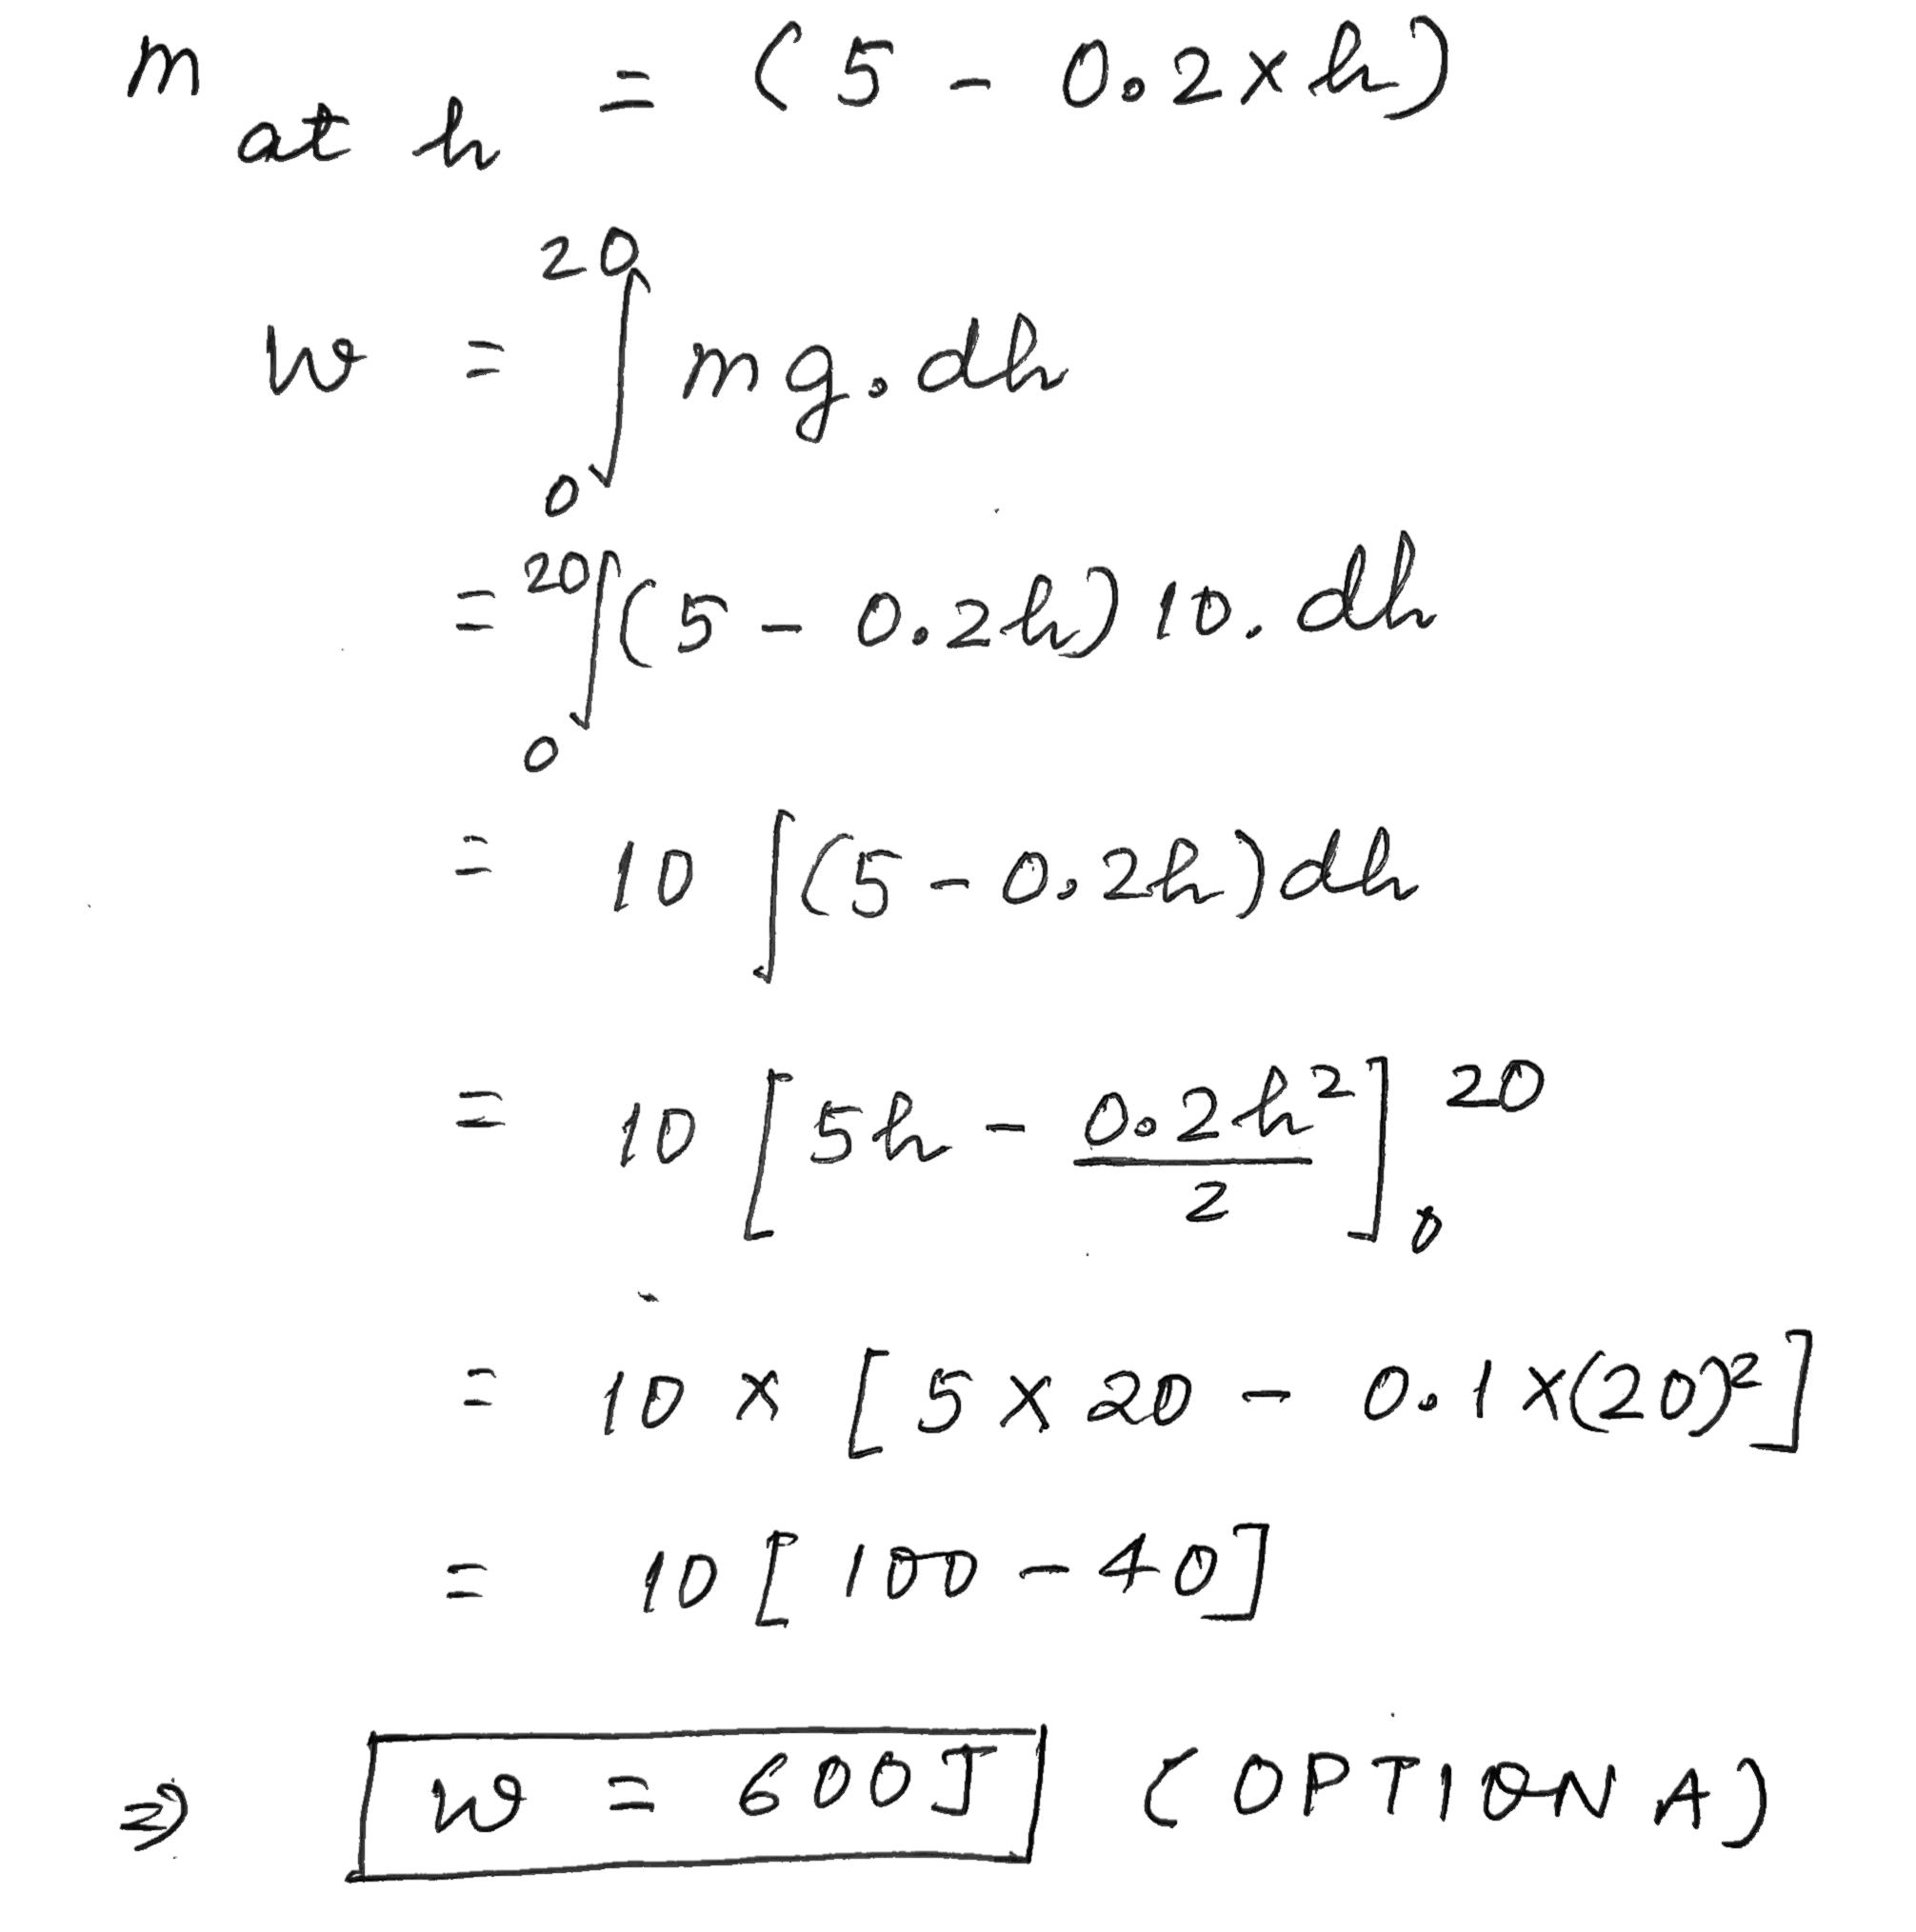 m at h = (5 - 0.2×h)
w = ∫₀²⁰ mg.dh
= ∫₀²⁰ (5 - 0.2h) 10. dh
= 10 ∫(5 - 0.2h) dh
= 10 [5h - 0.2h²/2]₀²⁰
= 10 × [5 × 20 - 0.1 ×(20)²]
= 10 [100 - 40]
⇒ w = 600J (OPTION A)